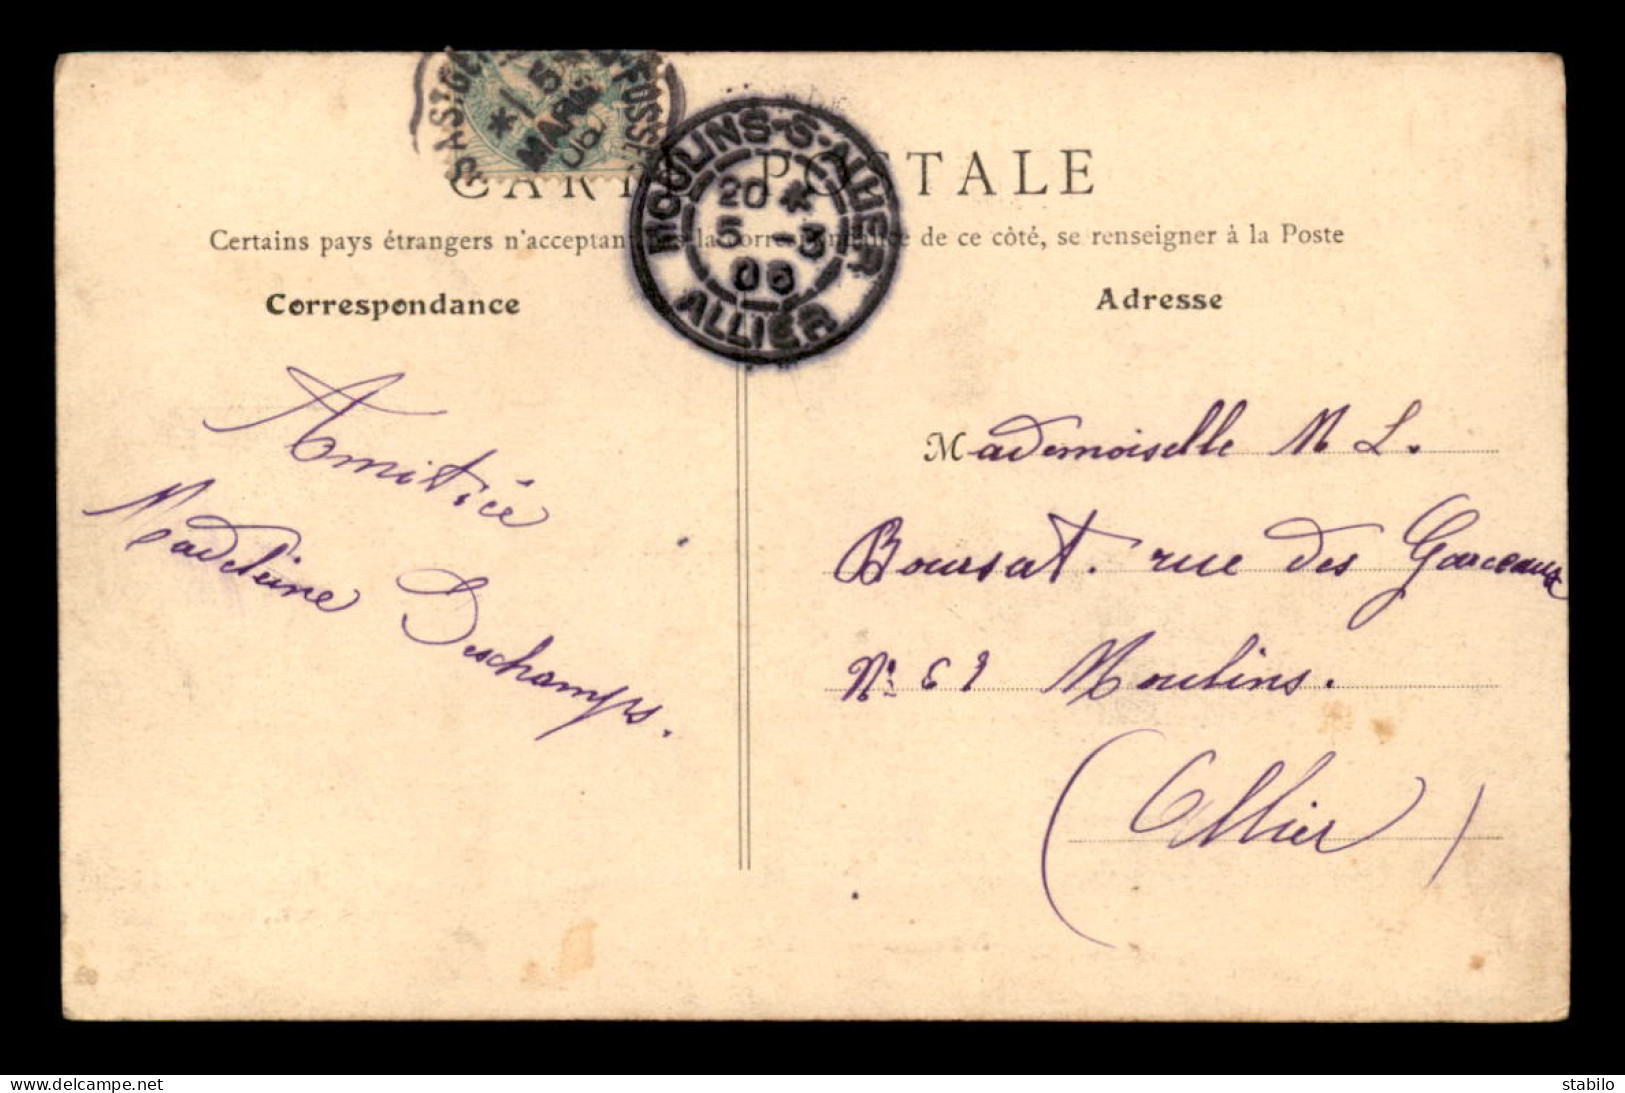 CARTE POSTALE
Certains pays étrangers n'acceptant pas la correspondance de ce côté, se renseigner à la Poste
Correspondance
Adresse
MOULINS-S-ALLIER
20 *
5 -3
06
ALLIER
* 1
5
MARS
06
FOSSE
Amitiée
Madeleine Deschamps.
Mademoiselle M L.
Boursat. rue des Garceaux
N° 61 Moulins.
(Allier)
www.delcampe.net
stabilo